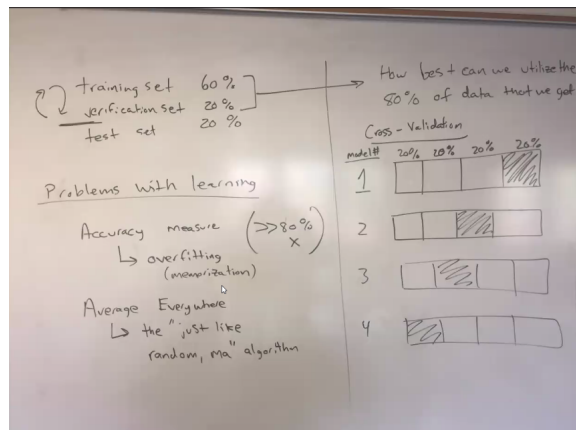 training set 60%
verification set 20%
test set 20%
Problems with learning
Accuracy measure (>>80%
x)
↳ overfitting
(memorization)
Average Everywhere
↳ the "just like
random, ma" algorithm
How best can we utilize the
80% of data that we got
Cross-Validation
model# 20% 20% 20% 20%
1
2
3
4